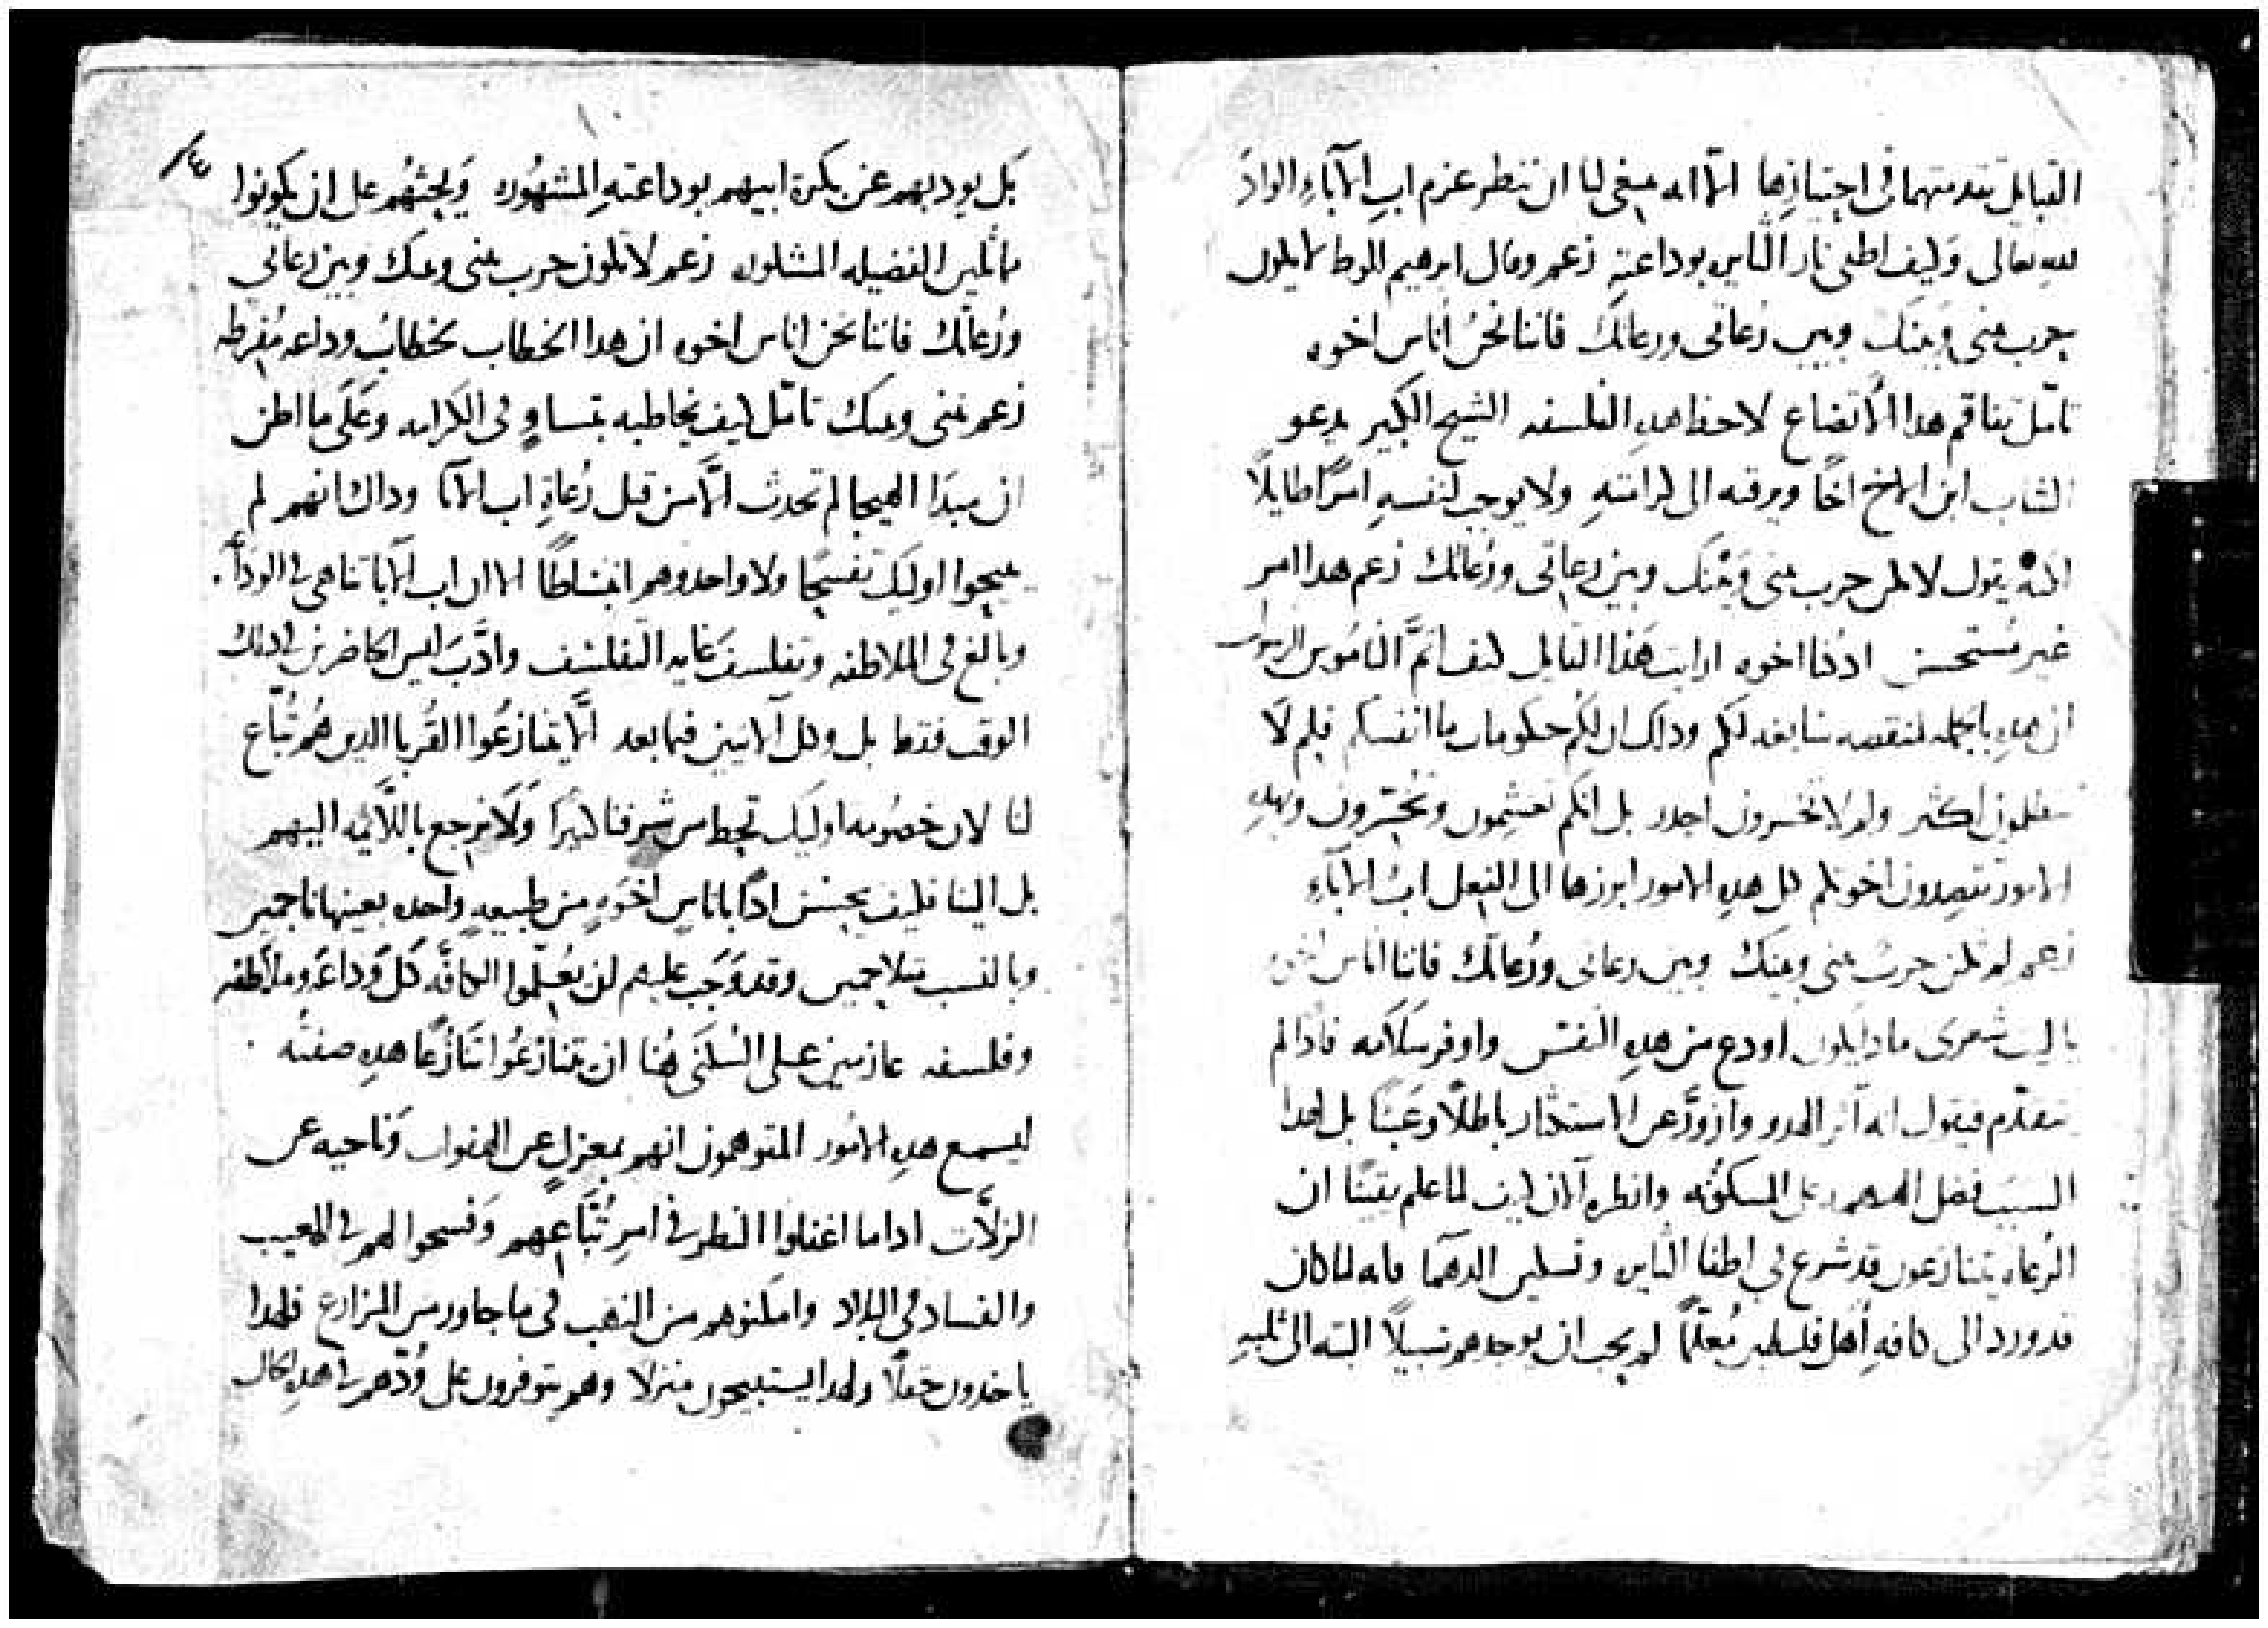 القبايل تقدمتهما في اجتيازها الا انه ينبغي لنا ان ننظر عزم اب الآباء الوادّ
لله تعالى وكيف اطفى نار الناس بوداعته زعم وقال ابرهيم للوط لا يكون
حرب بيني وبينك وبين رعاتي ورعاتك فاننا نحنُ اناس اخوه
تامّل تفاقم هذا الاتضاع لاحظ هذه الفلسفه الشيخ الكبير يدعو
الشاب ابن الاخ اخًا ويرقيه الى كرامته ولا يوجب لنفسهِ امرًا طايلًا
لكنه يقول لا تكن حرب بيني وبينك وبين رعاتي ورُعاتك زعم هذا امر
غير مُستحسن اذ كنا اخوه ارايت هذا القايل كيف اتمَّ الناموس الرسولي
ان هذه بالجمله لنقيصه سابغه لكم وذاك ان لكم حكومات ما انفسكم فلِم لا
تظلمون اكثر ولم لا تخسرون اجدر بل انكم تغشمون وتخسّرون وبهذه
الامور تقصدون اخوتكم كل هذه الامور ابرزها الى الفعل ابُ الآباءِ
زعم لم تكن حربُ بيني وبينك وبين رعاتي ورُعاتك فاننا اناس
يا ليت شعرى ماذا يكون اودع من هذه النفس واوفر سلامه
يتقدّم فيقول انه آثر الهدو وازورَّ عن الاستيثار باطلًا وعبثًا بل لهذا
السبب فضل على المسكونه وانظره الآن كيف لما علم يقينًا ان
الرعاه يتنازعون قد شرع في اطفا النايره وتسكين الدهما فانه لما كان
قد ورد الى كافةِ اهل فلسطين مُعلّمًا لم يجب ان يوجدهم سبيلًا البته الى ثلبهِ
٤
بل يودبهم عن بكرة ابيهم بوداعتهِ المشهُوره ويحثهُم على ان يكونوا
ماثلين الفضيله زعم لا تكون حرب بيني وبينك وبين رعاتي
ورُعاتك فاننا نحن اناس اخوه ان هذا الخطاب لخطابُ وداعه مُفرطه
زعم بيني وبينك تامّل كيف يخاطبه بتساوٍ في الكرامه وعلى ما اظن
ان مبدا الهيجا لم تحدث الّا من قبل رُعاةِ اب الآبا وذاك انهم لم
يبيحوا اوليك تفسّحًا ولا واحدوهم انبساطًا الا ان اب الآبا تناهى في الوداعه
وبالغ في الملاطفه وتفلسف غايه التفلسُف وادَّب ليس الحاضرين في ذلك
الوقت فقط بل وكل الآتيين فيما بعد الّا يتنازعُوا القُربا الذين هُم تُبّاع
لنا لان خصُومه اوليك تحط من شرفنا كثيرًا ولا نرجع باللّايمه اليهم
بل الينا فكيف يحسُن اذًا باناسٍ اخوهٍ من طبيعهٍ واحده بعينها ناجمين
وبالنسب متلاحمين وقد وَجَب عليهم ان يُعلّموا الكافّه كل وَداعةٍ وملاطفه
وفلسفه عازمين على السُكنى هُنا ان يتنازعُوا تنازُعًا هذه صفتُه
ليسمع هذه الامُور المتوهمون انهم بمعزلٍ عن الهفوات وناحيه عن
الزلّات اذا ما اغفلوا النظر في امرِ تُبّاعهم وفسحوا لهم في المعيب
والفساد في البلاد وامكنوهم من النهب في ما جاور من المزارع فلهذا
ياخذون حقلًا ولهذا يستبيحون منزلًا وهم يتوفرون على وُدّهم في هذه الحال